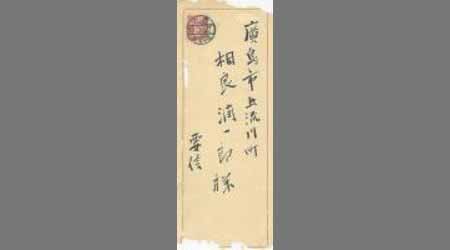 廣島市上流川町
相良潤一郎様
要信